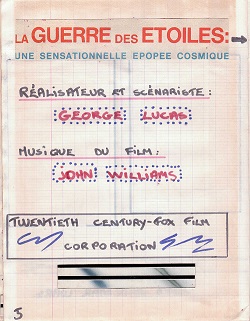 LA GUERRE DES ETOILES:
UNE SENSATIONNELLE EPOPEE COSMIQUE
RÉALISATEUR ET SCÉNARISTE :
GEORGE LUCAS
MUSIQUE DU FILM :
JOHN WILLIAMS
TWENTIETH CENTURY-FOX FILM
CORPORATION
5